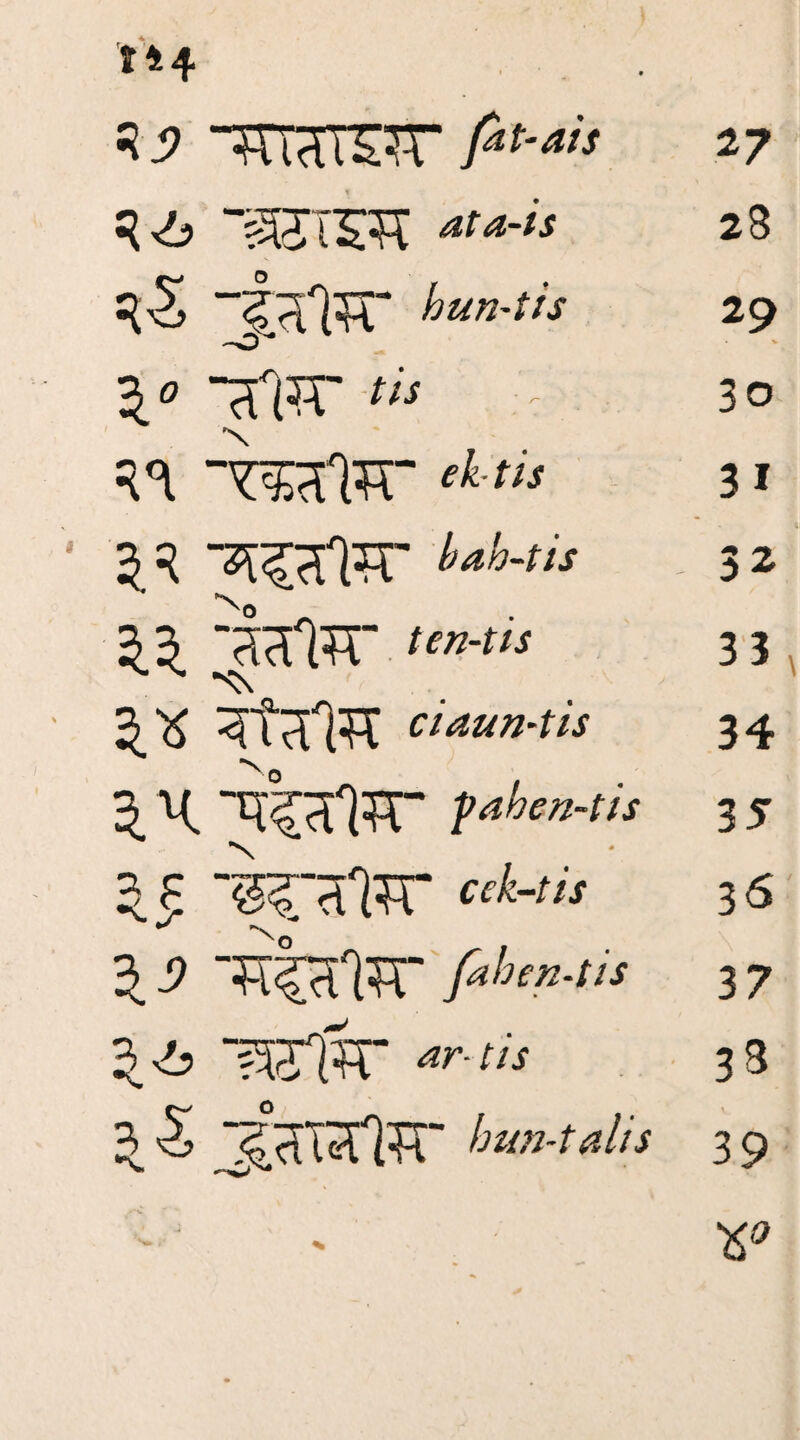 124
२७ सताइस ſat-ais 27
२८ अठाइस ata-is 28
२९ हुंतीस hun-tis 29
३० तीस tis 30
३१ ऐकतीस ek-tis 31
३२ बहतीस bah-tis 32
३३ तेंतीस ten-tis 33
३४ चौंतीस ciaun-tis 34
३५ पहेंतीस pahen-tis 35
३६ छेहतीस cek-tis 36
३७ सहेंतीस ſahen-tis 37
३८ अठर्तीस ar-tis 38
३९ हुंतालीस hun-talis 39
४०